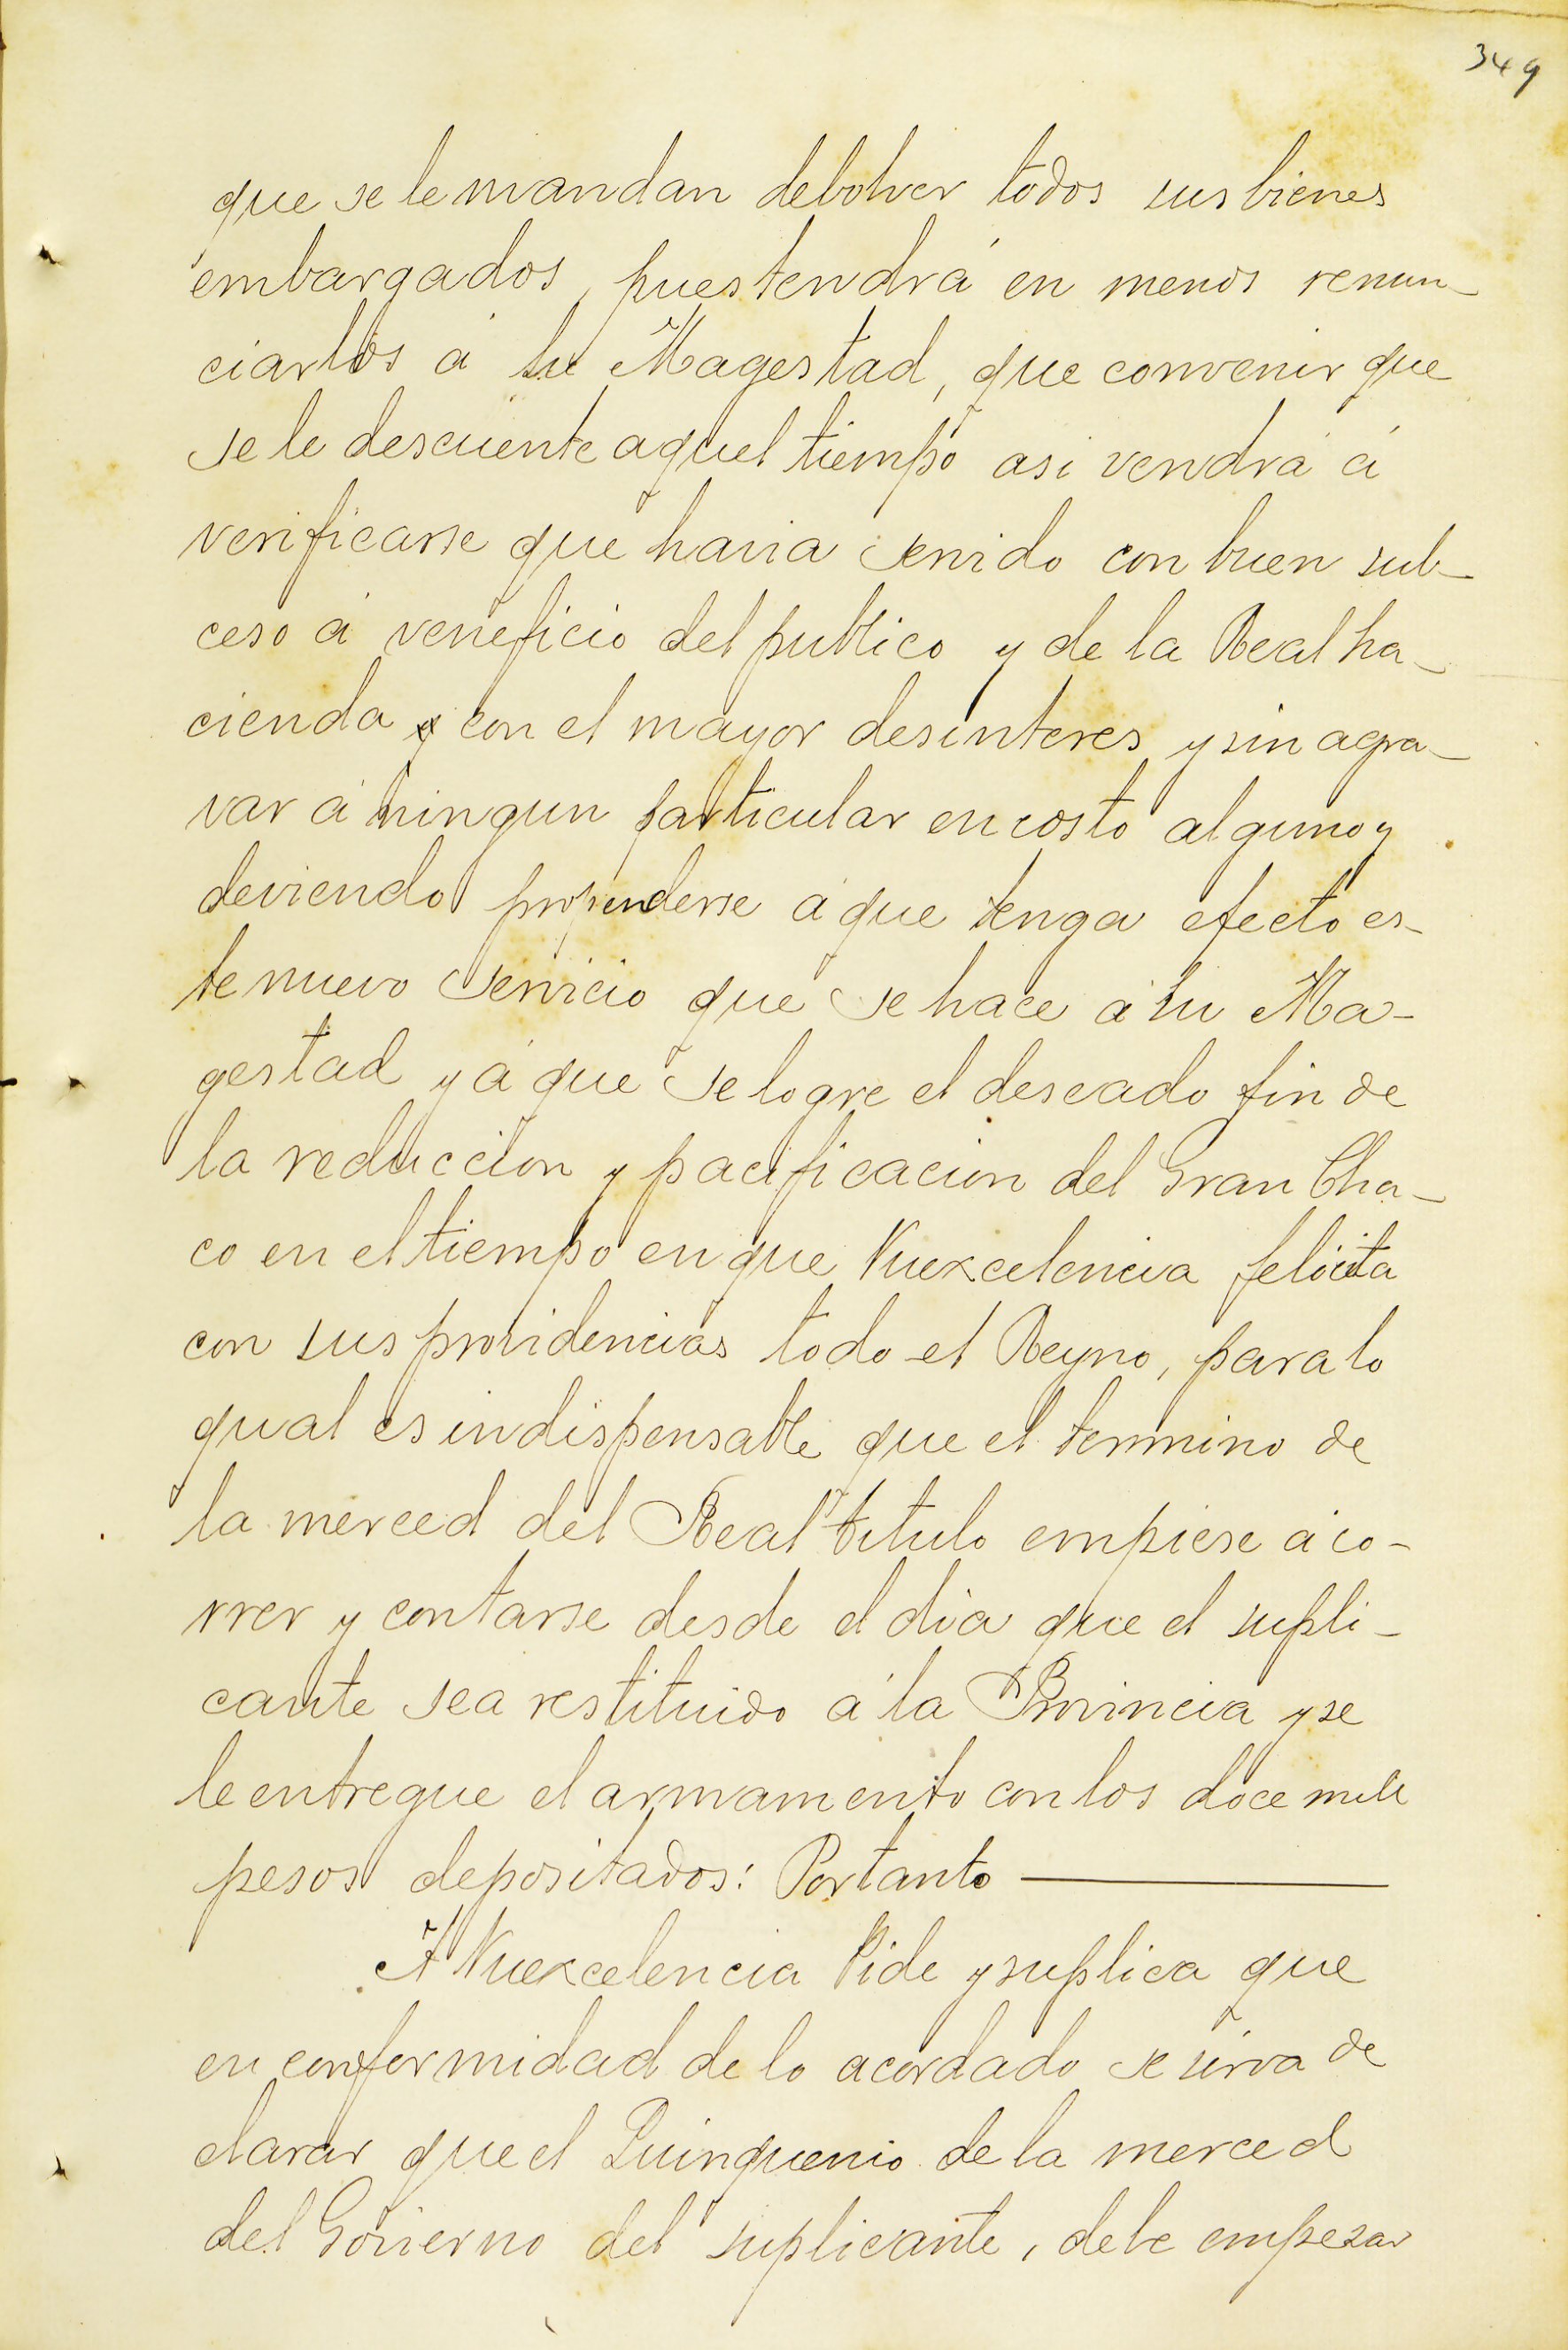 349
que se le mandan debolver todos sus bienes
embargados, pues tendrá en menos renun-
ciarlos á su Magestad, que convenir que
se le descuente aquel tiempo asi vendrá á
verificarse que havia servido con buen sub-
ceso á veneficio del publico y de la Real ha-
cienda y con el mayor desinteres y sin agra-
var á ningun particular en costo alguno y
deviendo propenderse á que tenga efecto es-
te nuevo servicio que se hace á su Ma-
gestad y á que se logre el deseado fin de
la reduccion y pacificacion del Gran Cha-
co en el tiempo en que Vuexcelencia felicita
con sus providencias todo el Reyno, para lo
qual es indispensable que el termino de
la merced del Real titulo empiese á co-
rrer y contarse desde el dia que el supli-
cante sea restituido á la Provincia y se
le entregue el armamento con los doce mill
pesos depositados: Portanto
A Vuexcelencia Pide y suplica que
en conformidad de lo acordado se sirva de
clarar que el Quinquenio de la merced
del Govierno del suplicante, debe empesar